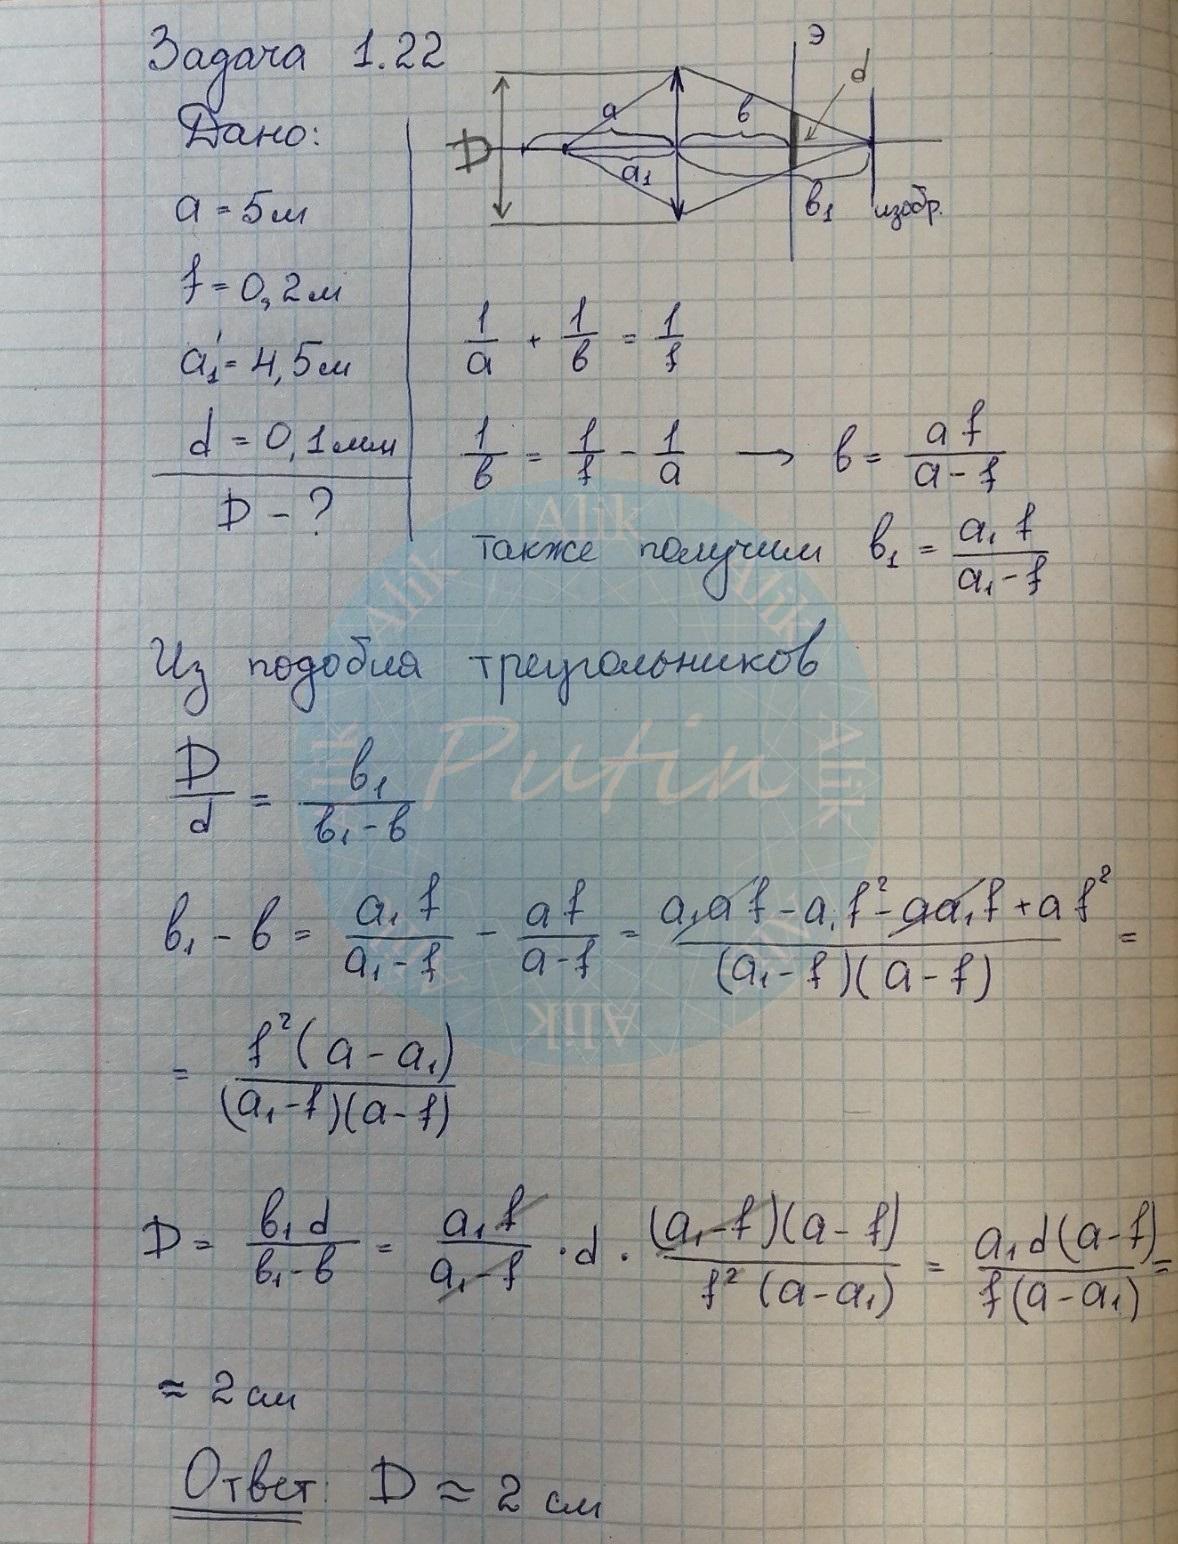 Задача 1.22
Дано:
a = 5м
f = 0,2м
a₁ = 4,5м
d = 0,1мм
D - ?
D a a₁ в в₁ Э d изобр.
1/a + 1/в = 1/f
1/в = 1/f - 1/a → в = af/(a - f)
также получим в₁ = a₁f/(a₁ - f)
Из подобия треугольников
D/d = в₁/(в₁ - в)
в₁ - в = a₁f/(a₁ - f) - af/(a - f) = (a₁af - a₁f² - aa₁f + af²)/((a₁ - f)(a - f)) =
= f²(a - a₁)/((a₁ - f)(a - f))
D = в₁d/(в₁ - в) = a₁f/(a₁ - f) · d · (a₁ - f)(a - f)/(f²(a - a₁)) = a₁d(a - f)/(f(a - a₁)) =
≈ 2 см
Ответ: D ≈ 2 см
Alik
Alik
Alik
Alik
Alik
Putin